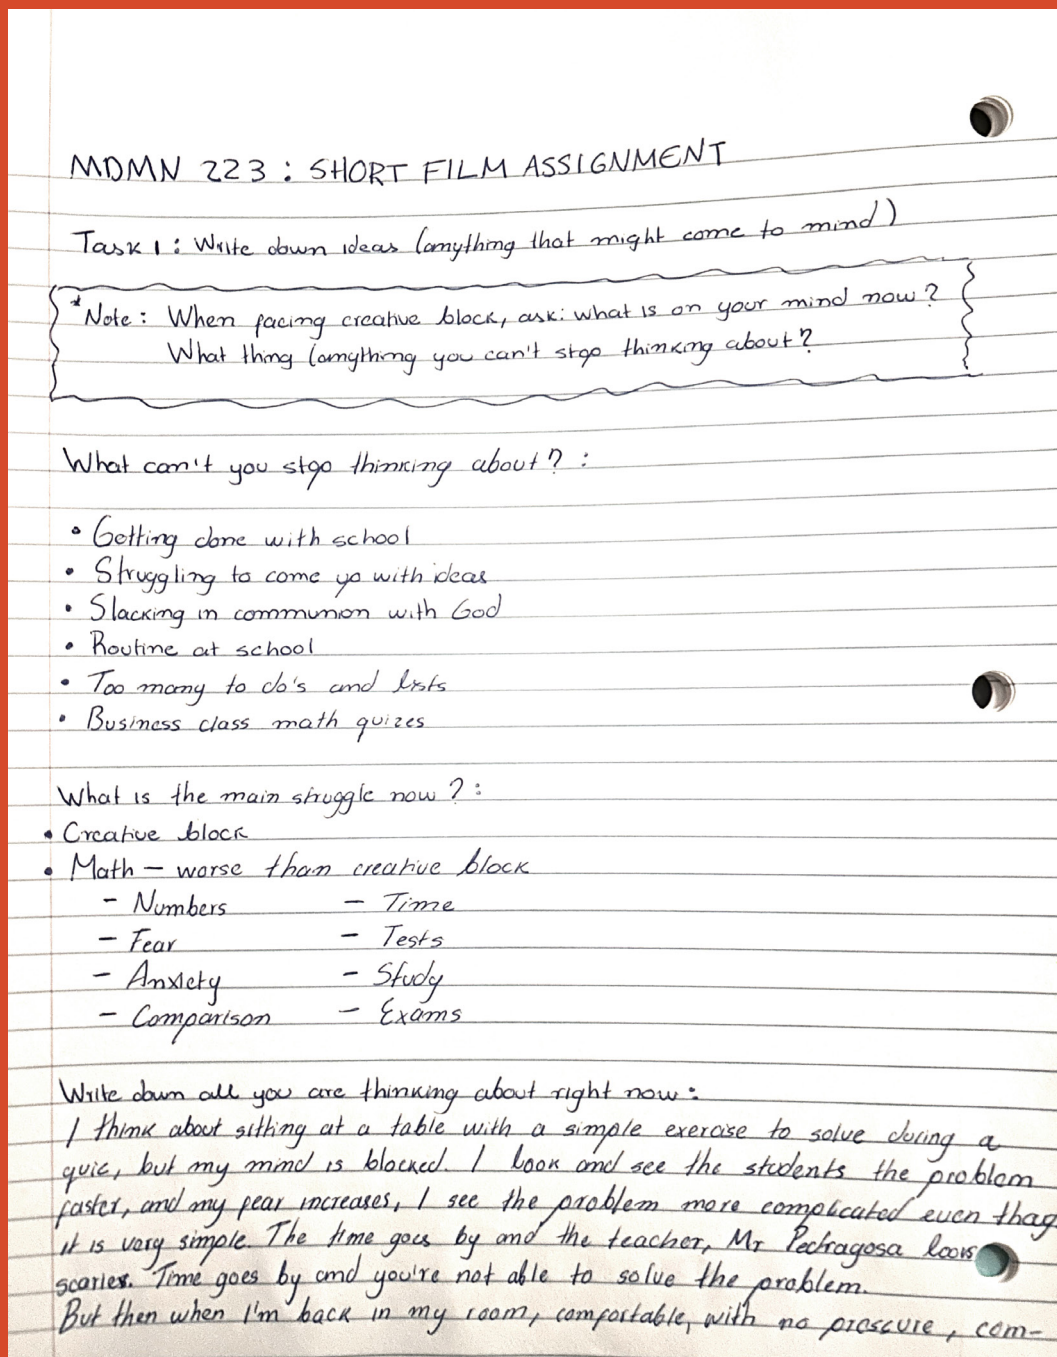 MDMN 223 : SHORT FILM ASSIGNMENT
Task 1 : Write down ideas (anything that might come to mind)
*Note : When facing creative block, ask: what is on your mind now?
What thing (anything you can't stop thinking about?
What can't you stop thinking about? :
• Getting done with school
• Struggling to come up with ideas
• Slacking in communion with God
• Routine at school
• Too many to do's and lists
• Business class math quizes
What is the main struggle now? :
• Creative block
• Math – worse than creative block
– Numbers – Time
– Fear – Tests
– Anxiety – Study
– Comparison – Exams
Write down all you are thinking about right now :
I think about sitting at a table with a simple exercise to solve during a
quic, but my mind is blocked. I look and see the students the problem
faster, and my fear increases, I see the problem more complicated even thag
it is very simple. The time goes by and the teacher, Mr Pedragosa looks
scarier. Time goes by and you're not able to solve the problem.
But then when I'm back in my room, comfortable, with no prescure, com-